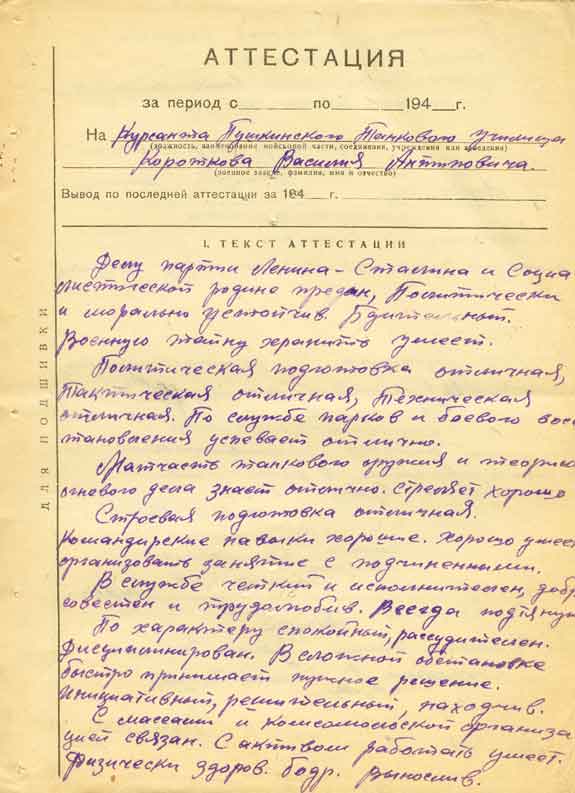 АТТЕСТАЦИЯ
за период с по 194 г.
На Курсанта Пушкинского Танкового Училища
(должность, наименование войсковой части, соединения, учреждения или заведения)
Короткова Василия Антиповича.
(военное звание, фамилия, имя и отчество)
Вывод по последней аттестации за 194 г.
I. ТЕКСТ АТТЕСТАЦИИ
ДЛЯ ПОДШИВКИ
Делу партии Ленина – Сталина и Социа
листической родине предан, Политически
и морально устойчив. Бдительный.
Военную тайну хранить умеет.
Политическая подготовка отличная,
Тактическая отличная, Техническая
отличная. По службе парков и боевого восс
тановления успевает отлично.
Матчасть танкового оружия и теорию
огневого дела знает отлично. Стреляет хорошо
Строевая подготовка отличная.
Командирские навыки хорошие. Хорошо умеет
организовать занятие с подчиненными.
В службе четкий и исполнителен, добр
совестен и трудолюбив. Всегда подтянут
По характеру спокойный, рассудителен.
Дисциплинирован. В сложной обстановке
быстро принимает нужное решение.
Инициативный, решительный, находчив.
С массами и комсомольской организа
цией связан. С активом работать умеет.
Физически здоров. бодр. Вынослив.